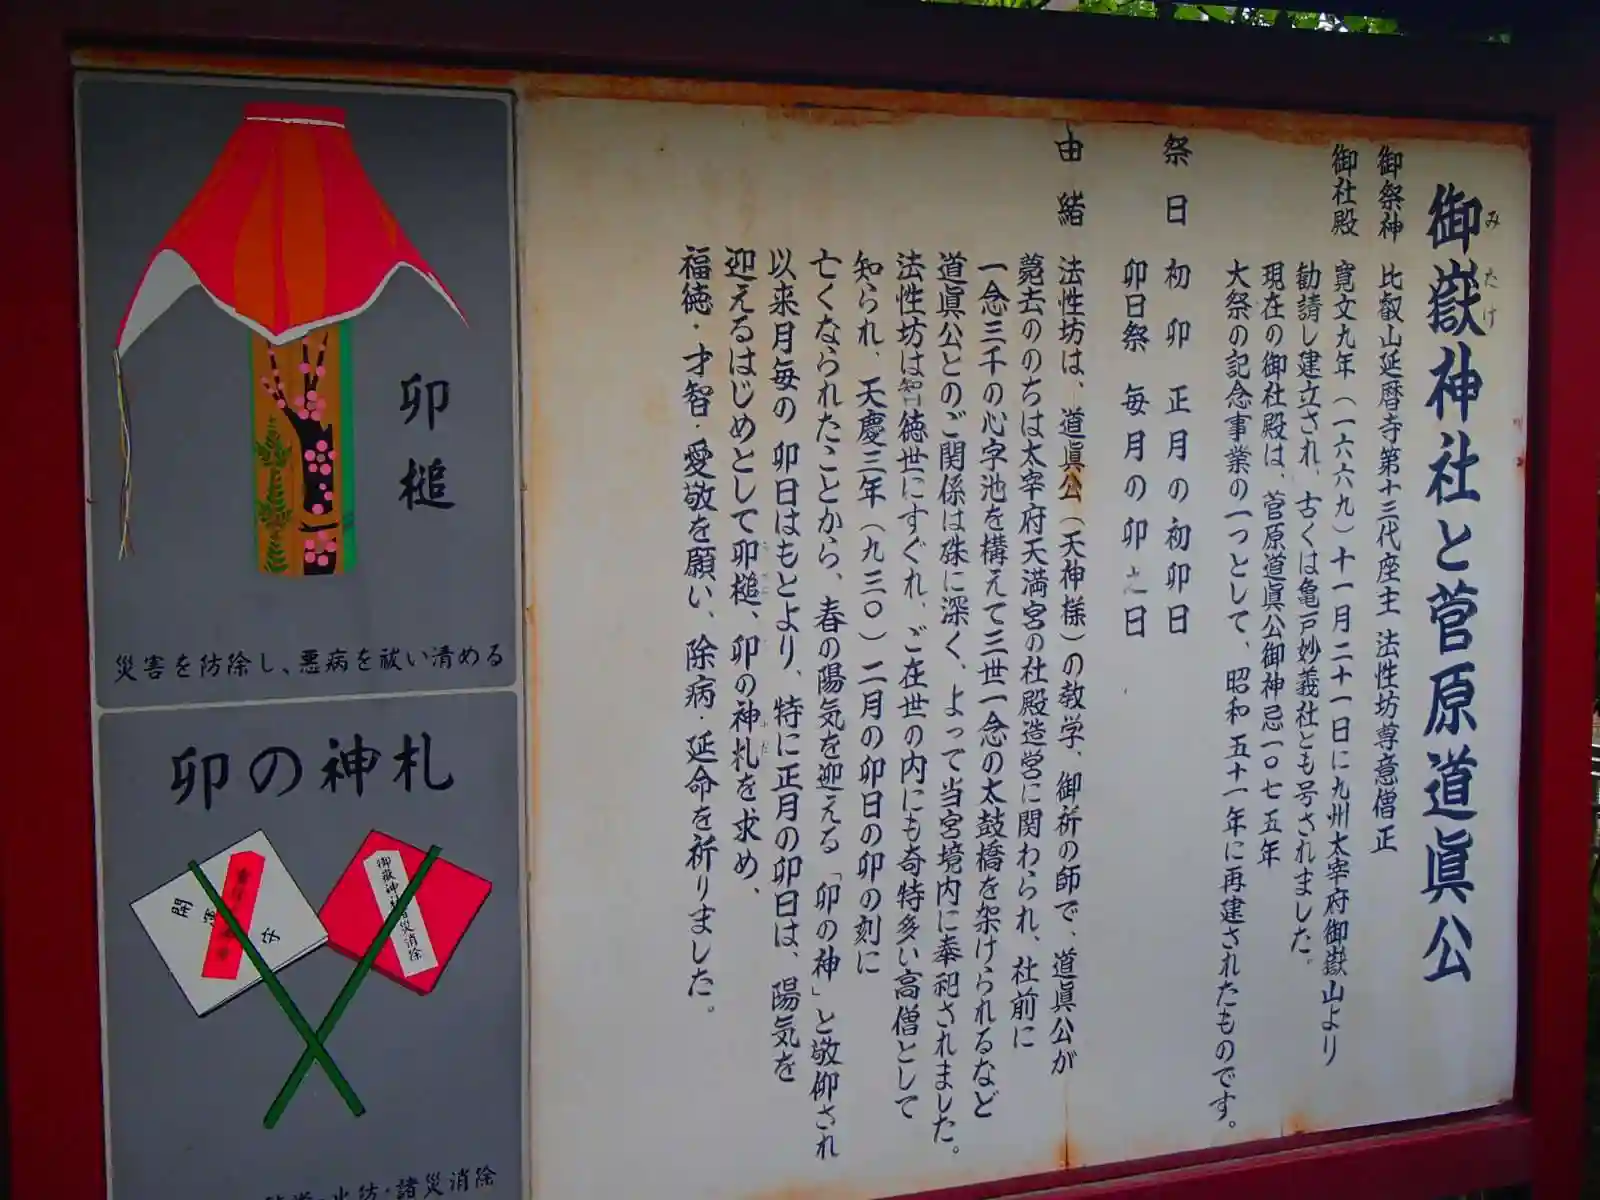 御嶽神社と菅原道眞公
みたけ
御祭神 比叡山延暦寺第十三代座主 法性坊尊意僧正
御社殿 寛文九年（一六六九）十一月二十一日に九州太宰府御嶽山より
勧請し建立され、古くは亀戸妙義社とも号されました。
現在の御社殿は、菅原道眞公御神忌一〇七五年
大祭の記念事業の一つとして、昭和五十一年に再建されたものです。
祭日 初卯 正月の初卯日
卯日祭 毎月の卯之日
由緒 法性坊は、道眞公（天神様）の教学、御祈の師で、道眞公が
薨去ののちは太宰府天満宮の社殿造営に関わられ、社前に
一念三千の心字池を構えて三世一念の太鼓橋を架けられるなど
道眞公とのご関係は殊に深く、よって当宮境内に奉祀されました。
法性坊は智徳世にすぐれ、ご在世の内にも奇特多い高僧として
知られ、天慶三年（九三〇）二月の卯日の卯の刻に
亡くなられたことから、春の陽気を迎える「卯の神」と敬仰され
以来月毎の卯日はもとより、特に正月の卯日は、陽気を
迎えるはじめとして卯槌、卯の神札を求め、
福徳・才智・愛敬を願い、除病・延命を祈りました。
卯槌
災害を防除し、悪病を祓い清める
卯の神札
開運
御嶽神社
災消除
火防・諸災消除